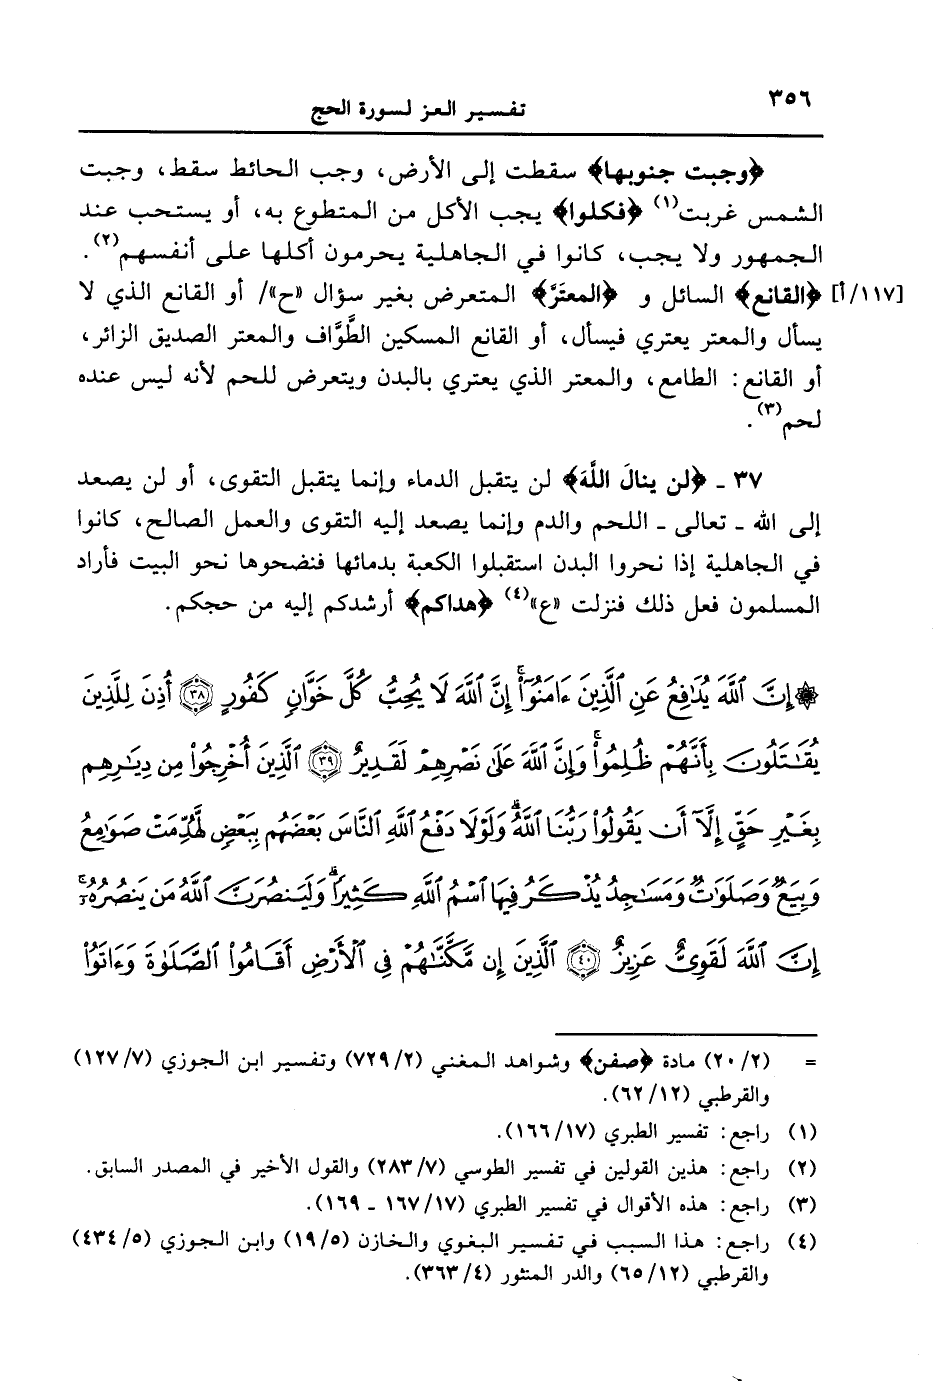 ٣٥٦
تفسير العز لسورة الحج
﴿وجبت جنوبها﴾ سقطت إلى الأرض، وجب الحائط سقط، وجبت
الشمس غربت(١) ﴿فكلوا﴾ يجب الأكل من المتطوع به، أو يستحب عند
الجمهور ولا يجب، كانوا في الجاهلية يحرمون أكلها على أنفسهم(٢).
[١١٧/أ] ﴿القانع﴾ السائل و ﴿المعترَّ﴾ المتعرض بغير سؤال «ح»/ أو القانع الذي لا
يسأل والمعتر يعتري فيسأل، أو القانع المسكين الطَّوَّاف والمعتر الصديق الزائر،
أو القانع: الطامع، والمعتر الذي يعتري بالبدن ويتعرض للحم لأنه ليس عنده
لحم(٣).
٣٧ ـ ﴿لن ينالَ اللَّهَ﴾ لن يتقبل الدماء وإنما يتقبل التقوى، أو لن يصعد
إلى الله ـ تعالى ـ اللحم والدم وإنما يصعد إليه التقوى والعمل الصالح، كانوا
في الجاهلية إذا نحروا البدن استقبلوا الكعبة بدمائها فنضحوها نحو البيت فأراد
المسلمون فعل ذلك فنزلت «ع»(٤) ﴿هداكم﴾ أرشدكم إليه من حجكم.
۞ إِنَّ ٱللَّهَ يُدَٰفِعُ عَنِ ٱلَّذِينَ ءَامَنُوٓا۟ ۗ إِنَّ ٱللَّهَ لَا يُحِبُّ كُلَّ خَوَّانٍ كَفُورٍ ٣٨ أُذِنَ لِلَّذِينَ
يُقَٰتَلُونَ بِأَنَّهُمْ ظُلِمُوا۟ ۚ وَإِنَّ ٱللَّهَ عَلَىٰ نَصْرِهِمْ لَقَدِيرٌ ٣٩ ٱلَّذِينَ أُخْرِجُوا۟ مِن دِيَٰرِهِم
بِغَيْرِ حَقٍّ إِلَّآ أَن يَقُولُوا۟ رَبُّنَا ٱللَّهُ ۗ وَلَوْلَا دَفْعُ ٱللَّهِ ٱلنَّاسَ بَعْضَهُم بِبَعْضٍ لَّهُدِّمَتْ صَوَٰمِعُ
وَبِيَعٌ وَصَلَوَٰتٌ وَمَسَٰجِدُ يُذْكَرُ فِيهَا ٱسْمُ ٱللَّهِ كَثِيرًا ۗ وَلَيَنصُرَنَّ ٱللَّهُ مَن يَنصُرُهُۥٓ ۗ
إِنَّ ٱللَّهَ لَقَوِىٌّ عَزِيزٌ ٤٠ ٱلَّذِينَ إِن مَّكَّنَّٰهُمْ فِى ٱلْأَرْضِ أَقَامُوا۟ ٱلصَّلَوٰةَ وَءَاتَوُا۟
= (٢٠/٢) مادة ﴿صفن﴾ وشواهد المغني (٧٢٩/٢) وتفسير ابن الجوزي (١٢٧/٧)
والقرطبي (٦٢/١٢).
(١) راجع: تفسير الطبري (١٦٦/١٧).
(٢) راجع: هذين القولين في تفسير الطوسي (٢٨٣/٧) والقول الأخير في المصدر السابق.
(٣) راجع: هذه الأقوال في تفسير الطبري (١٦٧/١٧ ـ ١٦٩).
(٤) راجع: هذا السبب في تفسير البغوي والخازن (١٩/٥) وابن الجوزي (٤٣٤/٥)
والقرطبي (٦٥/١٢) والدر المنثور (٣٦٣/٤).